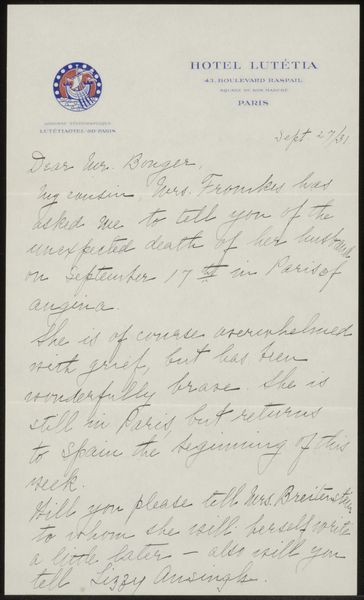 HOTEL LUTÉTIA
43, BOULEVARD RASPAIL
SQUARE DU BON MARCHÉ
PARIS
ADRESSE TÉLÉGRAPHIQUE
LUTÉTIAOTEL-PARIS
Sept 27/31
Dear Mr. Bonger,
My cousin, Mrs. Fromkes has
asked me to tell you of the
unexpected death of her husband
on September 17th in Paris of
angina.
She is of course overwhelmed
with grief, but has been
wonderfully brave. She is
still in Paris, but returns
to Spain the beginning of this
week.
Will you please tell Mrs. Breitenstein
to whom she will herself write
a little later – also will you
tell Lizzy Ansingh.